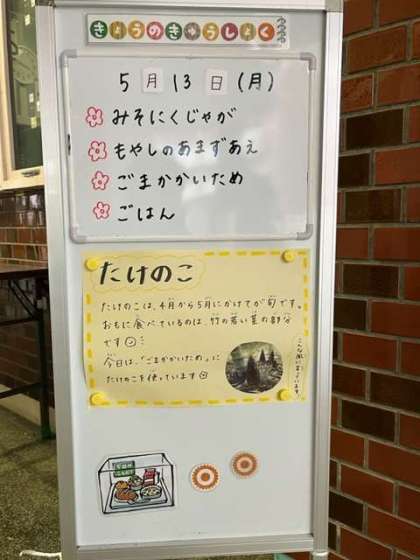 きょうのきゅうしょく
5月13日(月)
みそにくじゃが
もやしのあまずあえ
ごまかかいため
ごはん
たけのこ
たけのこは、4月から5月にかけてが旬です。
おもに食べているのは、竹の若い茎の部分
です
今日は、「ごまかかいため」に
たけのこを使っています
こんな風に生えています